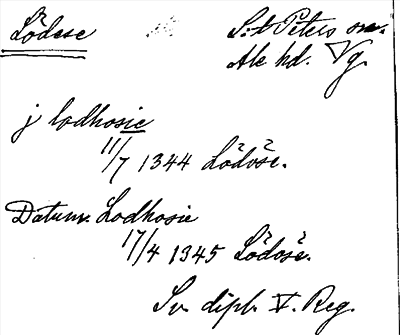 Lödöse S:t Peters sn.
Ale hd. Vg.
j lodhosie
11/7 1344 Lödöse.
Datum Lodhosie
17/4 1345 Lödöse.
Sv. dipl. V. Reg.